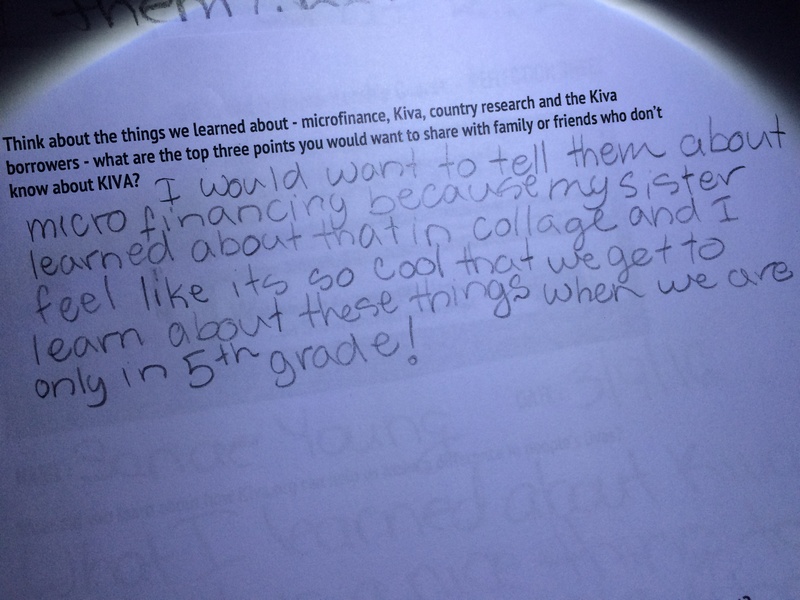 them?
Think about the things we learned about - microfinance, Kiva, country research and the Kiva
borrowers - what are the top three points you would want to share with family or friends who don't
know about KIVA? I would want to tell them about
micro financing because my sister
learned about that in collage and I
feel like its so cool that we get to
learn about these things when we are
only in 5th grade!
Young
What I learned about Kiva